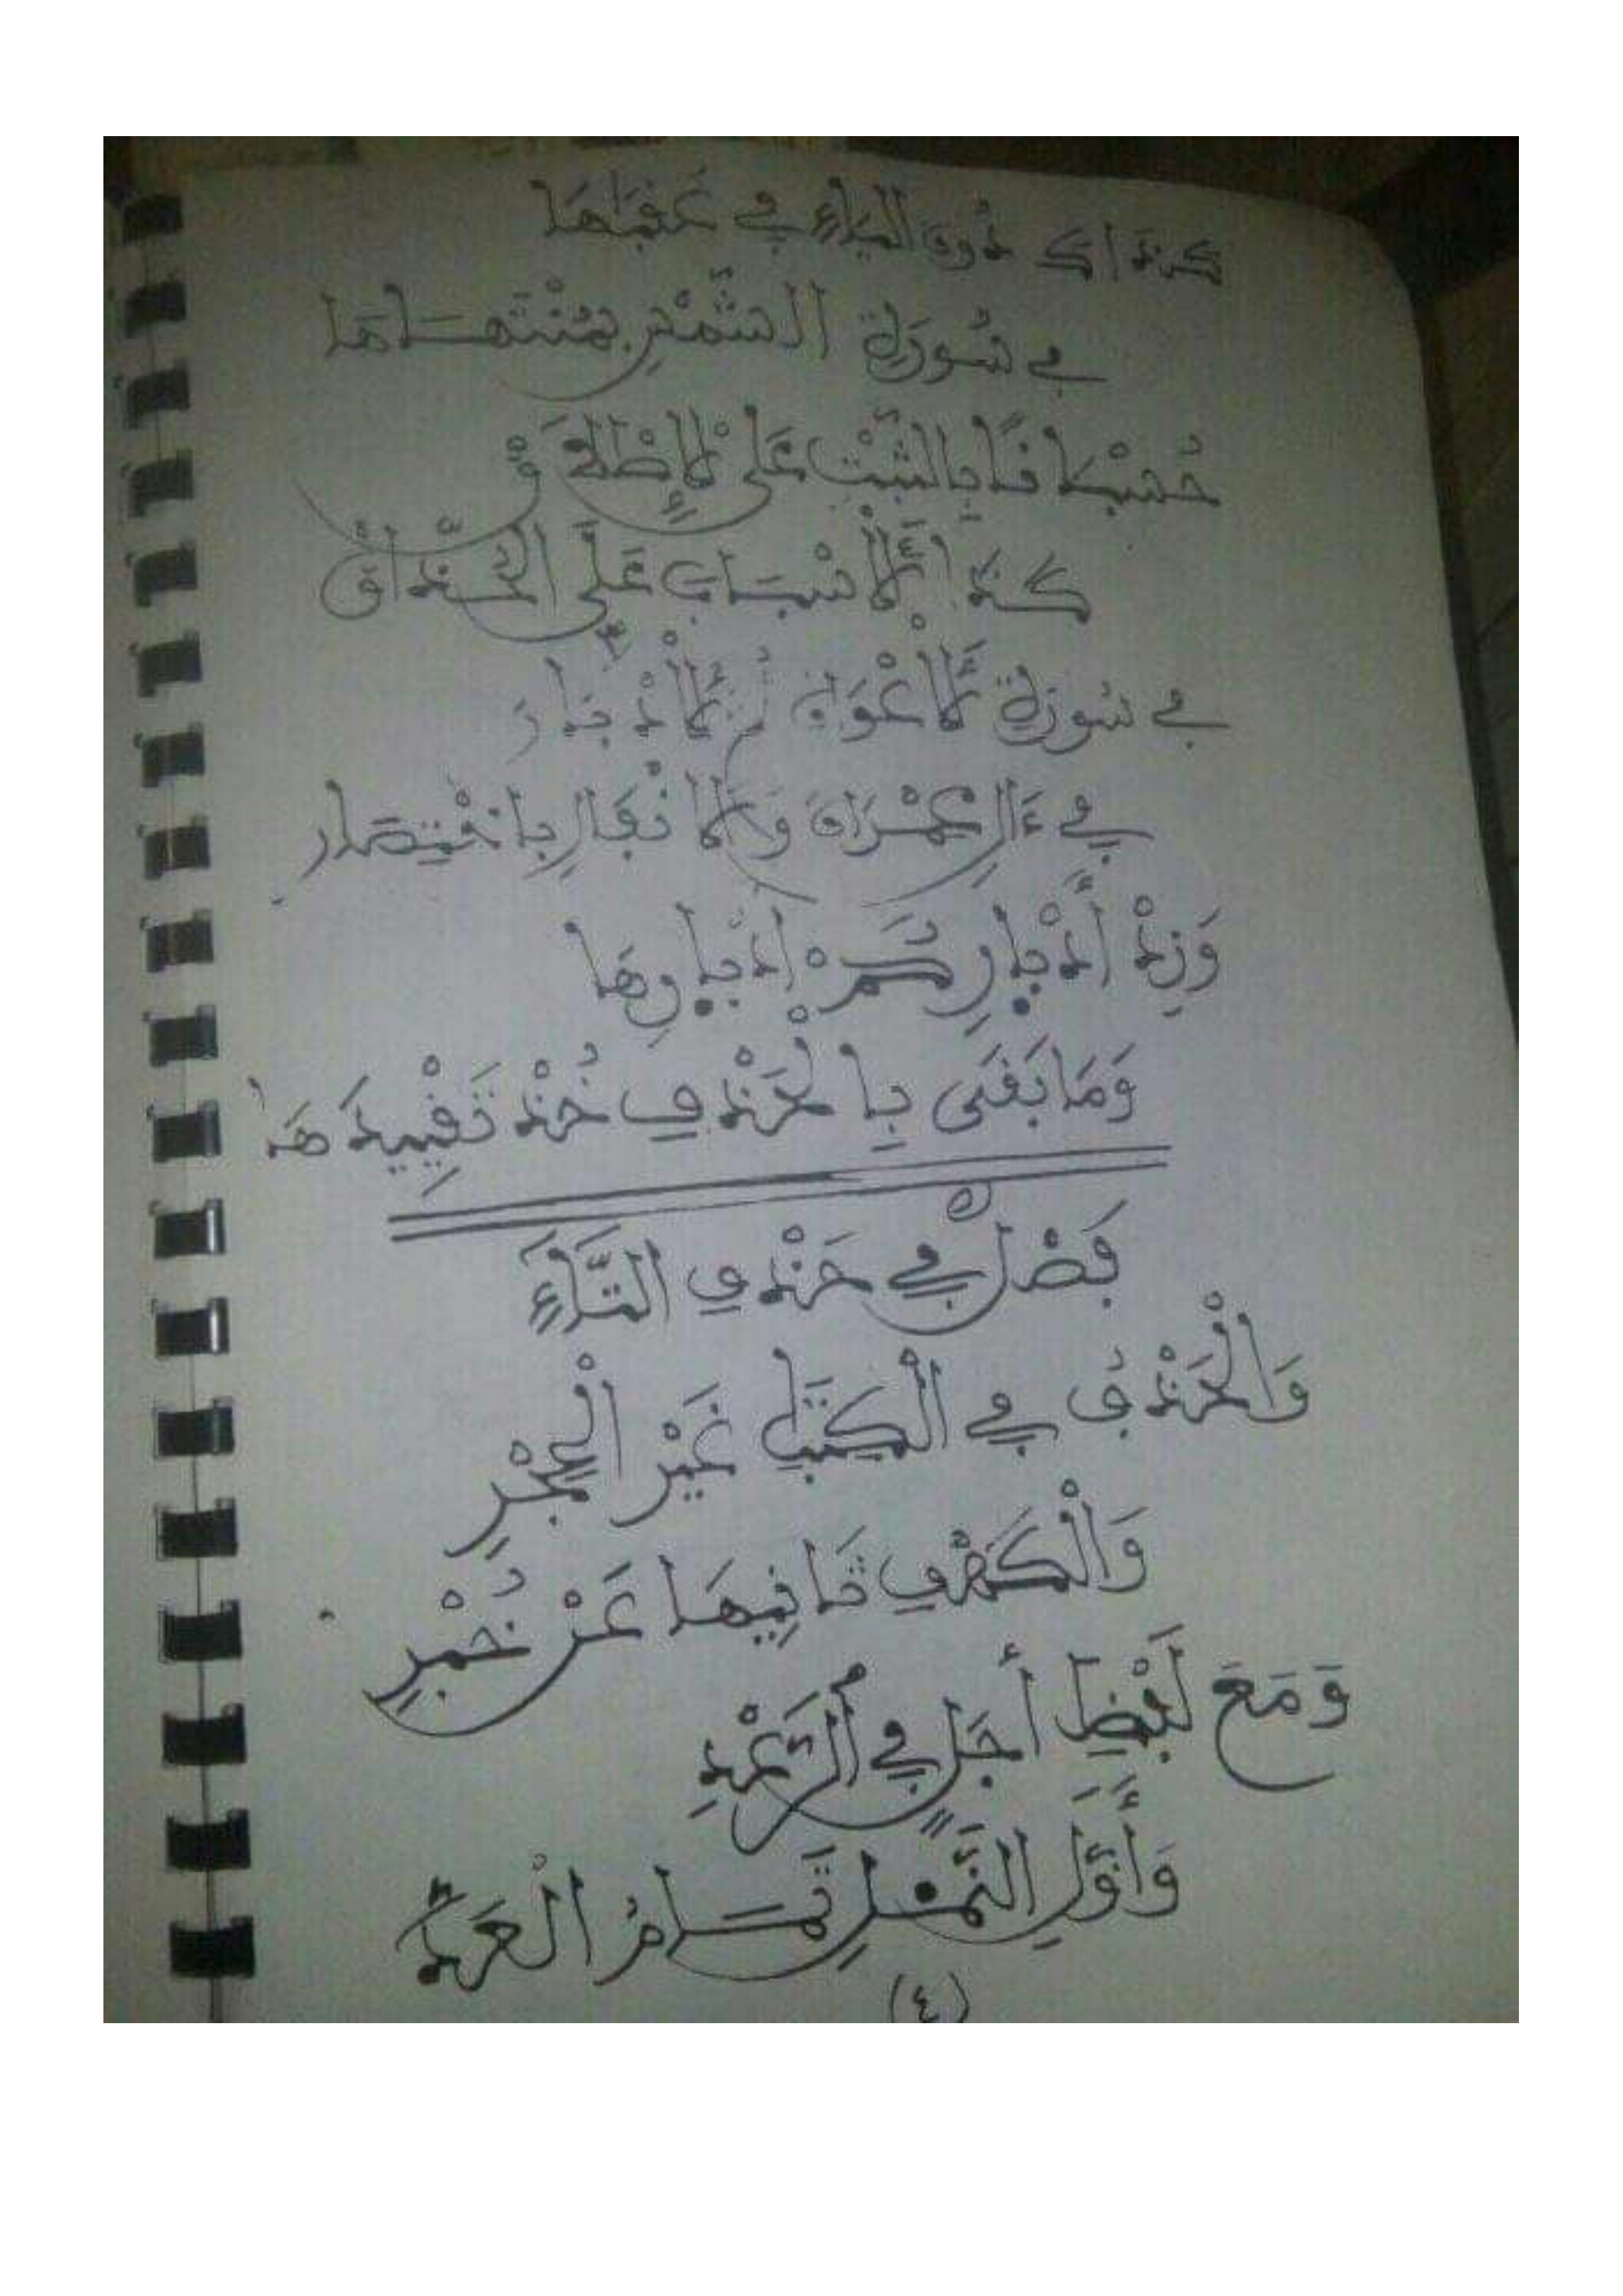 كذاك دون الياء في عقباها
في سورة الشمس بمنتهاها
حسبانا بالثبت على الإطلاق
كذا الأسباب على الحذاق
في سورة الأعراف الأدبار
في ءال عمران والأنفال باختصار
وَزِدْ أَدْبَارِ ثمَّ أدبارها
وَمَا بَقَى بِالْحَذْفِ خُذْ تَقْيِيدَهَا
فَصْلٌ فِي حَذْفِ التَّاءِ
وَالْحَذْفُ فِي الْكِتَٰبِ غَيْرَ الْحِجْرِ
وَالْكَهْفِ ثَانِيهَا عَنْ خُبْرِ
وَمَعَ لَفْظِ أَجَلٍ فِي الرَّعْدِ
وَأَوَّلِ النَّمْلِ تَمَامُ الْعَدِّ
(٤)